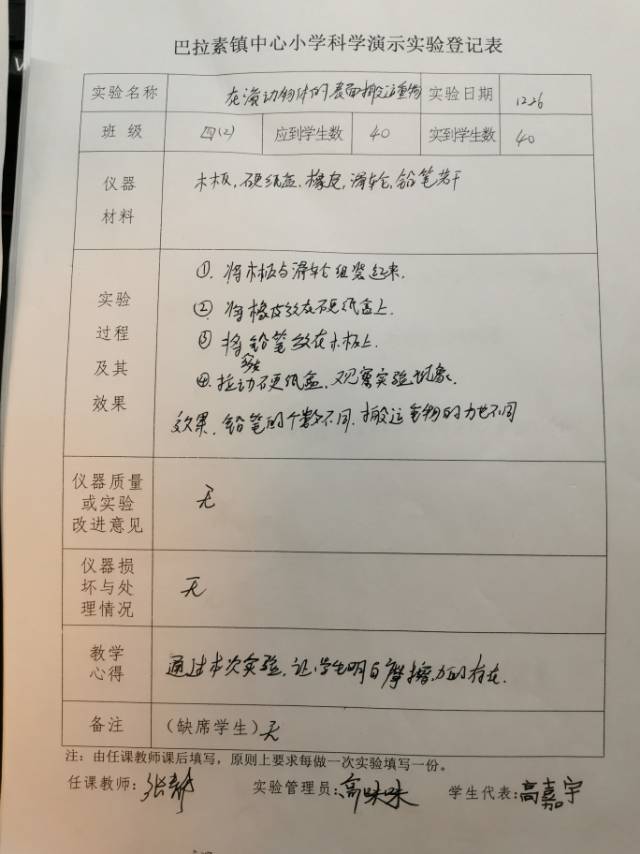 巴拉素镇中心小学科学演示实验登记表
实验名称 在滚动物体的表面搬运重物 实验日期 12.26
班 级 四(2) 应到学生数 40 实到学生数 40
仪器
材料
木板,硬纸盒,橡皮,滑轮,铅笔若干
实验
过程
及其
效果
①.将木板与滑轮组装起来.
②.将橡皮放在硬纸盒上.
③.将铅笔放在木板上.
④.拉动硬纸盒,观察实验现象.
效果.铅笔的个数不同.搬运重物的力也不同
仪器质量
或实验
改进意见
无
仪器损
坏与处
理情况
无
教学
心得
通过本次实验,让学生明白摩擦力的存在.
备注 (缺席学生)无
注:由任课教师课后填写,原则上要求每做一次实验填写一份。
任课教师: 实验管理员:高咏咏 学生代表:高嘉宇